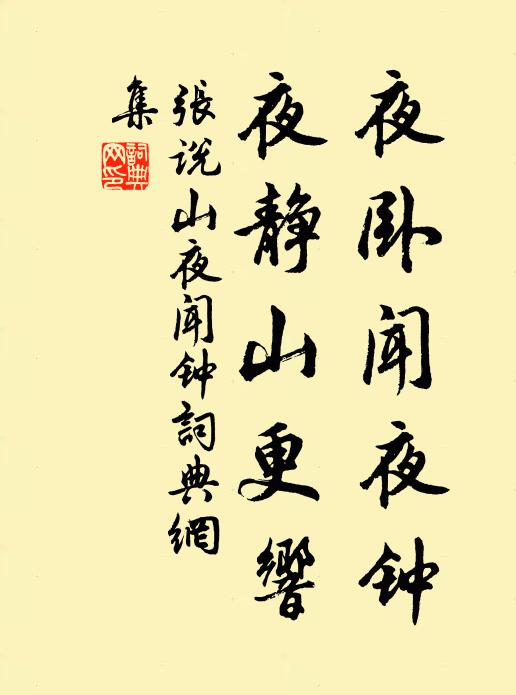 夜卧闻夜钟
夜静山更響
張说山夜闻钟詞典網
集
詞典网印